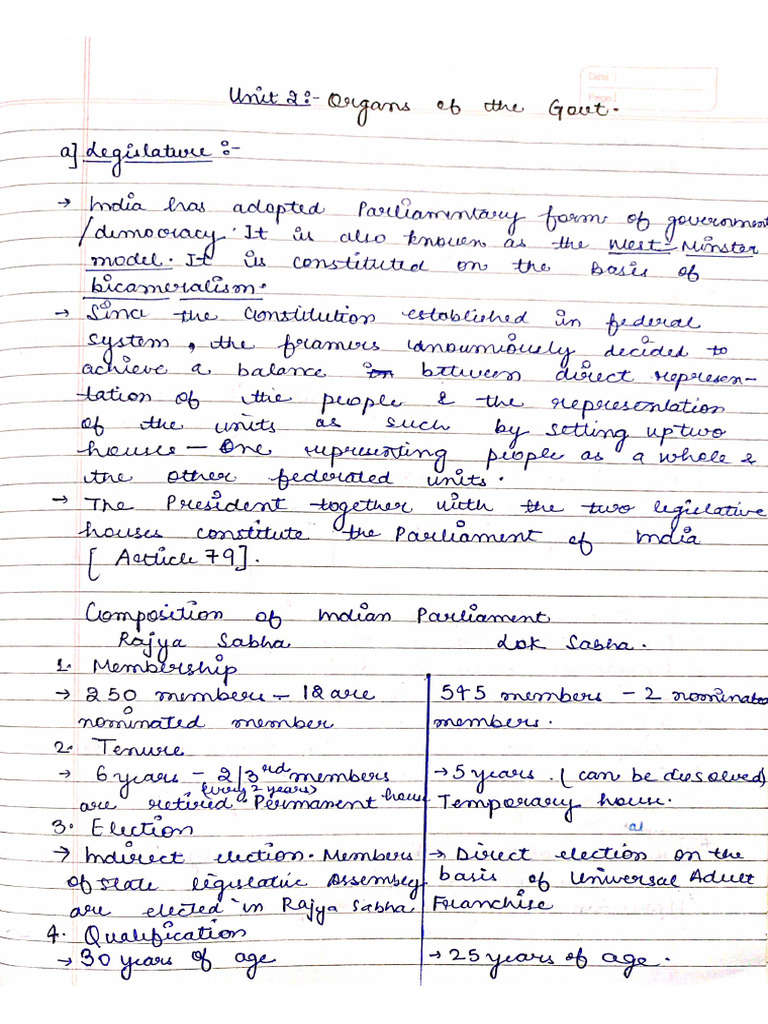 Date
Page
Unit 2:- Organs of the Govt.
a] Legislature :-
→ India has adopted Parliamentary form of government
/democracy. It is also known as the West-Minster
model. It is constituted on the basis of
bicameralism.
→ Since the Constitution established in federal
system, the framers unoumiously decided to
achieve a balance in between direct represen-
tation of the people & the representation
of the units as such by setting up two
houses - One representing people as a whole &
the other federated units.
→ The President together with the two legislative
houses constitute the Parliament of India
[Article 79].
Composition of Indian Parliament
Rajya Sabha Lok Sabha.
1. Membership
→ 250 members - 12 are 545 members - 2 nominated
nominated member members.
2. Tenure
→ 6 years - 2/3rd members → 5 years. (can be dissolved)
(every 2 years)
are retired. Permanent house Temporary house.
3. Election
→ Indirect election. Members → Direct election on the
of State legislative Assembly basis of Universal Adult
are elected in Rajya Sabha. Franchise
4. Qualification
→ 30 years of age → 25 years of age.